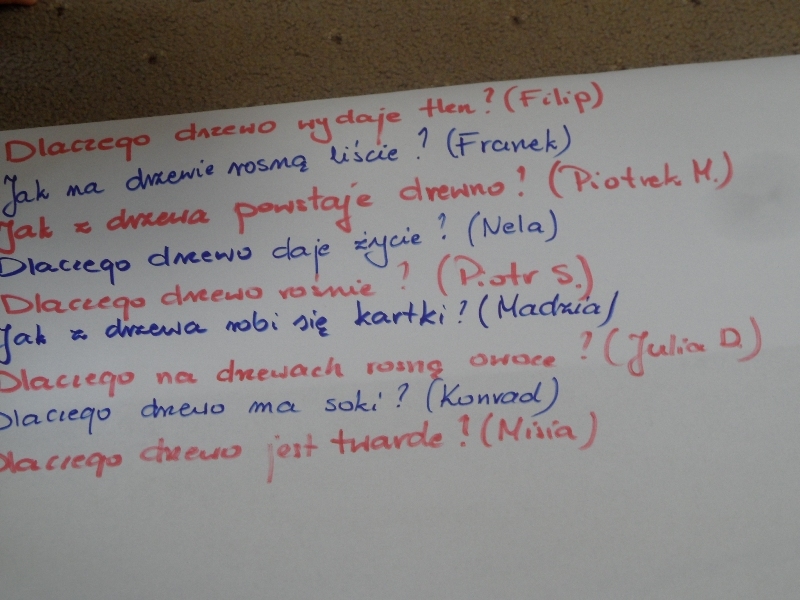 Dlaczego drzewo wydaje tlen? (Filip)
Jak na drzewie rosną liście? (Franek)
Jak z drzewa powstaje drewno? (Piotrek M.)
Dlaczego drzewo daje życie? (Nela)
Dlaczego drzewo rośnie? (Piotr S.)
Jak z drzewa robi się kartki? (Madzia)
Dlaczego na drzewach rosną owoce? (Julia D.)
Dlaczego drzewo ma soki? (Konrad)
Dlaczego drzewo jest twarde? (Misia)